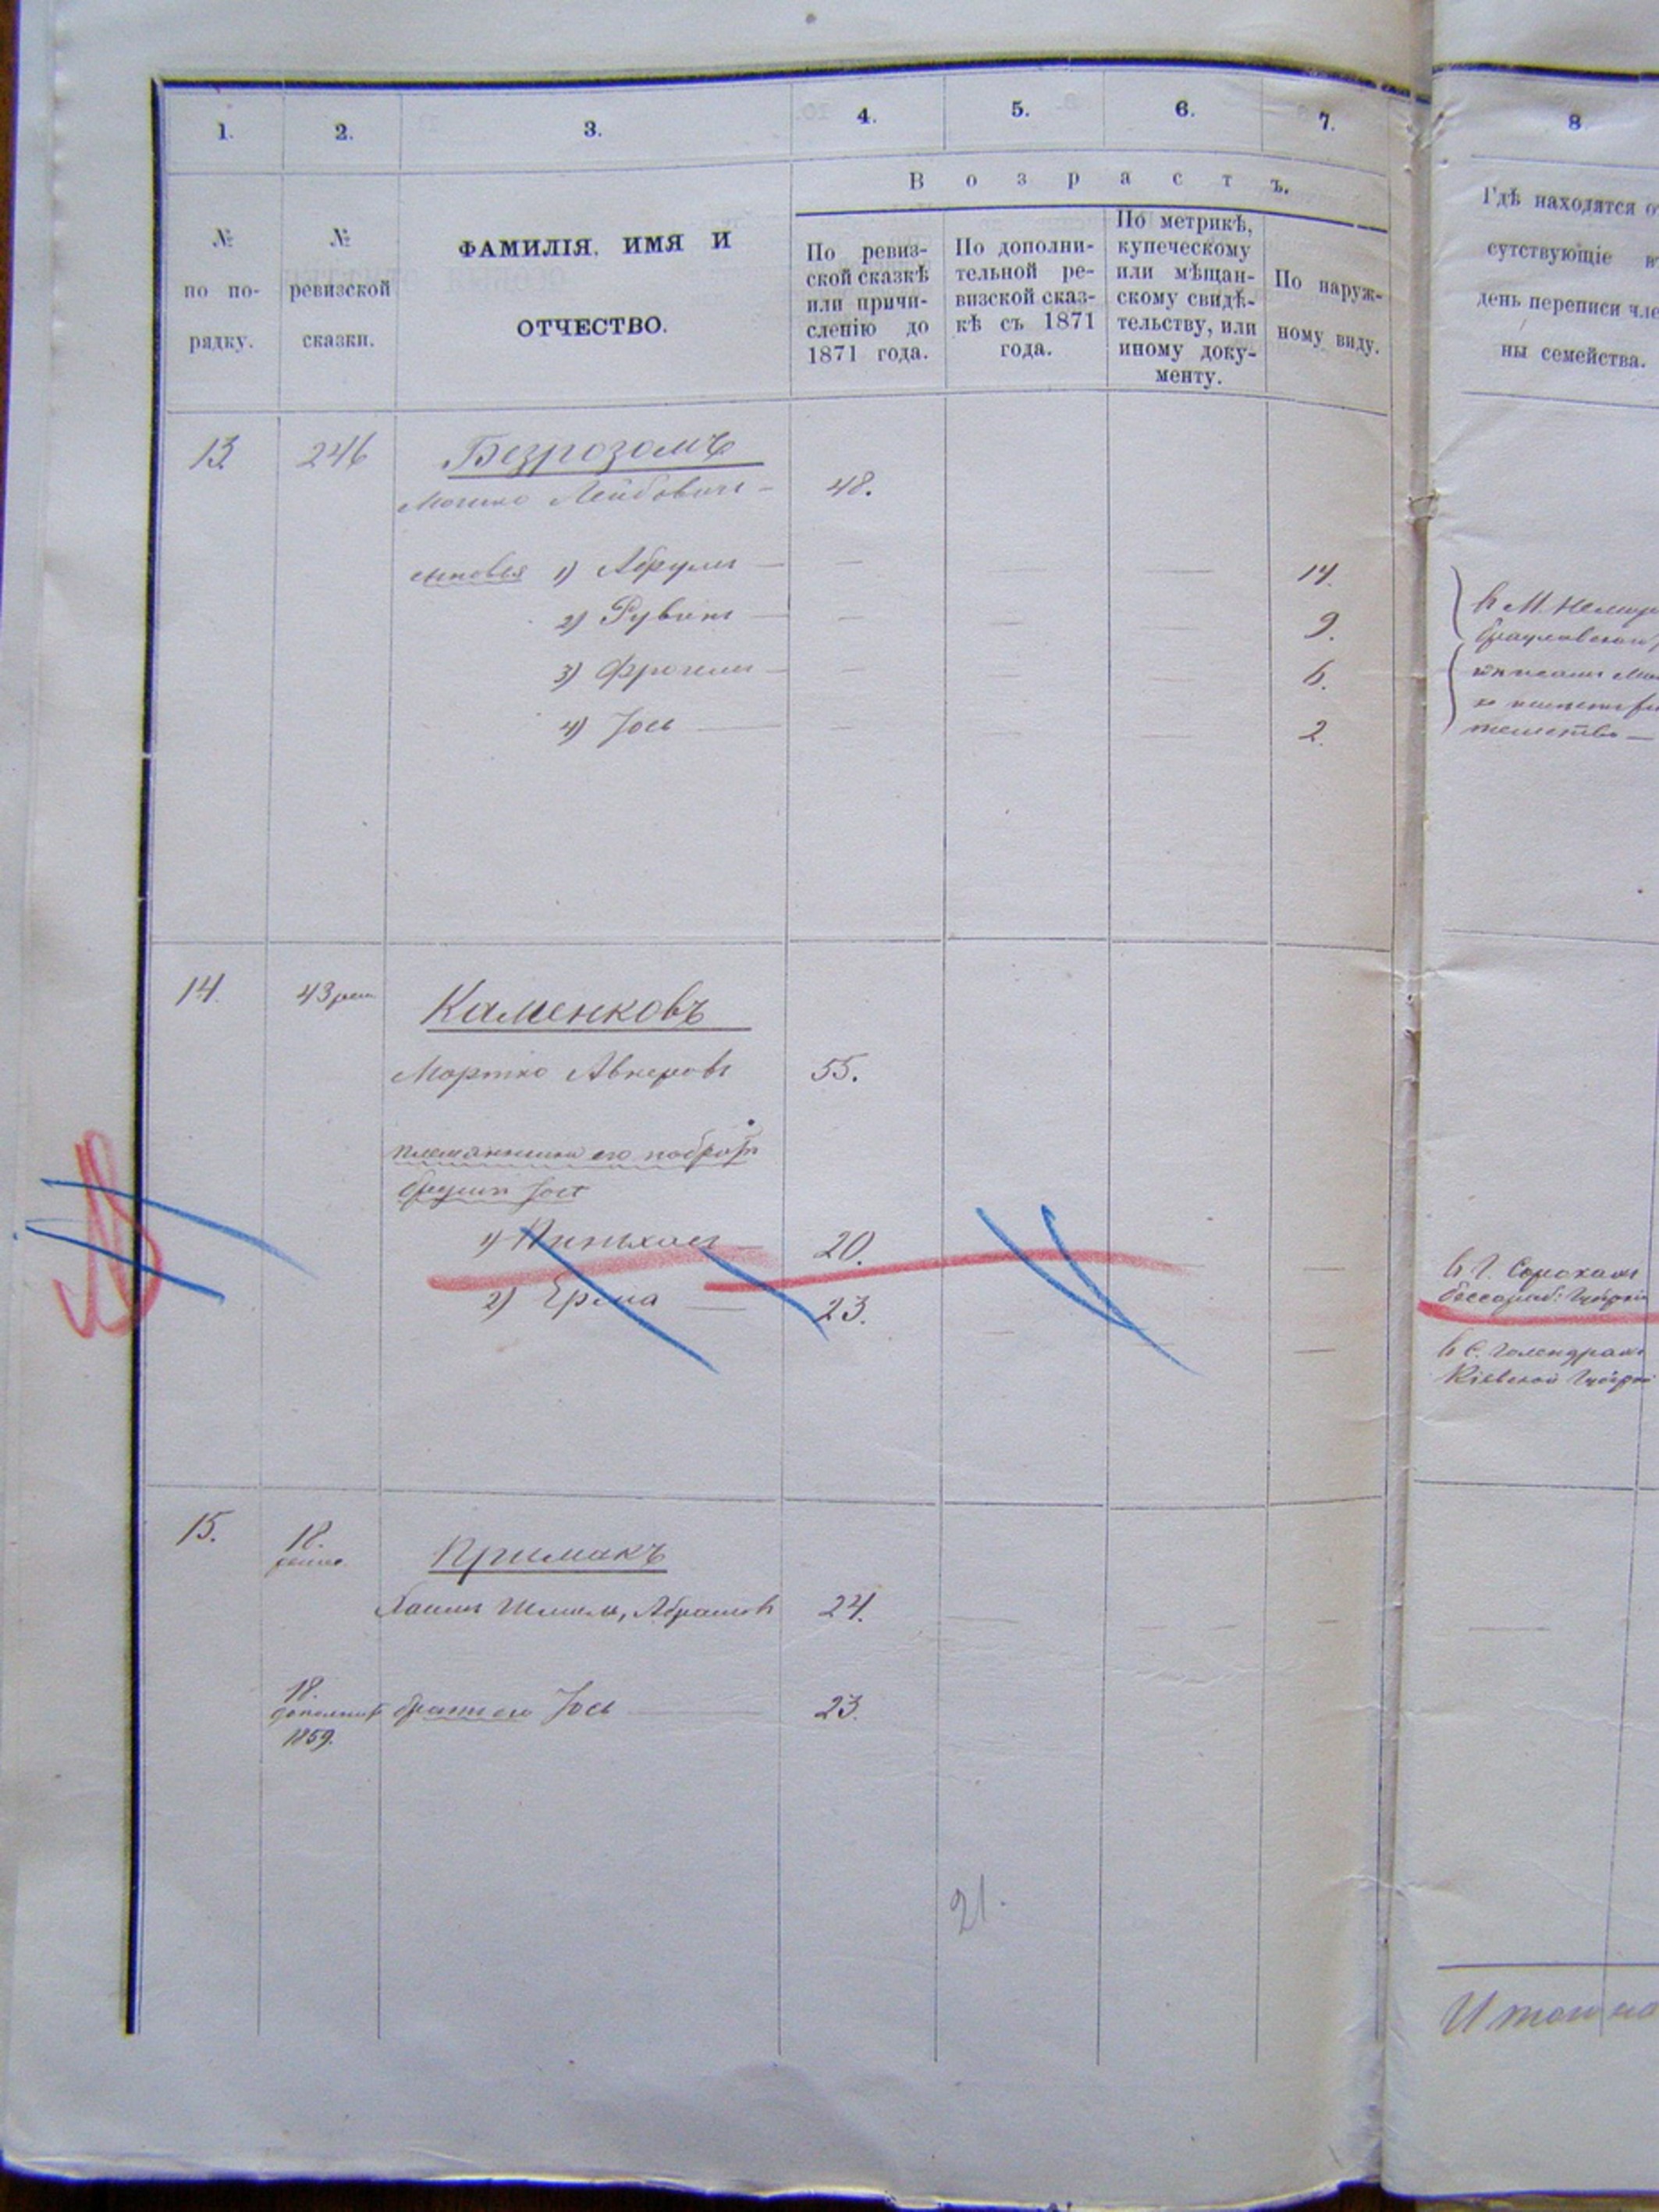 1.
2.
3.
4.
5.
6.
7.
8
Возрастъ.
№
по по-
рядку.
№
ревизской
сказки.
ФАМИЛІЯ, ИМЯ И
ОТЧЕСТВО.
По ревиз-
ской сказкѣ
или причи-
сленію до
1871 года.
По дополни-
тельной ре-
визской сказ-
кѣ съ 1871
года.
По метрикѣ,
купеческому
или мѣщан-
скому свидѣ-
тельству, или
иному доку-
менту.
По наруж-
ному виду.
Гдѣ находятся о
сутствующіе в
день переписи чле
ны семейства.
13 246 Безрозомъ
Мошко Лейбовичъ 48.
сыновья 1) Абрумъ — 14.
2) Рувинъ — 9.
3) Фроимъ — 6.
4) Іось — 2.
14. 43 Каменковъ
Мортко Авнеровъ 55.
племянники его
Іося
1) Пинхасъ — 20.
2) Ерема — 23.
въ Г. Сорокахъ
бессараб:
въ С. Голендрахъ
Кіевской
15. 18. Примакъ
Хаимъ Шмиль, Абрамовъ 24.
18.
дополнит братъ его Іось — 23.
1859.
21.
Итого